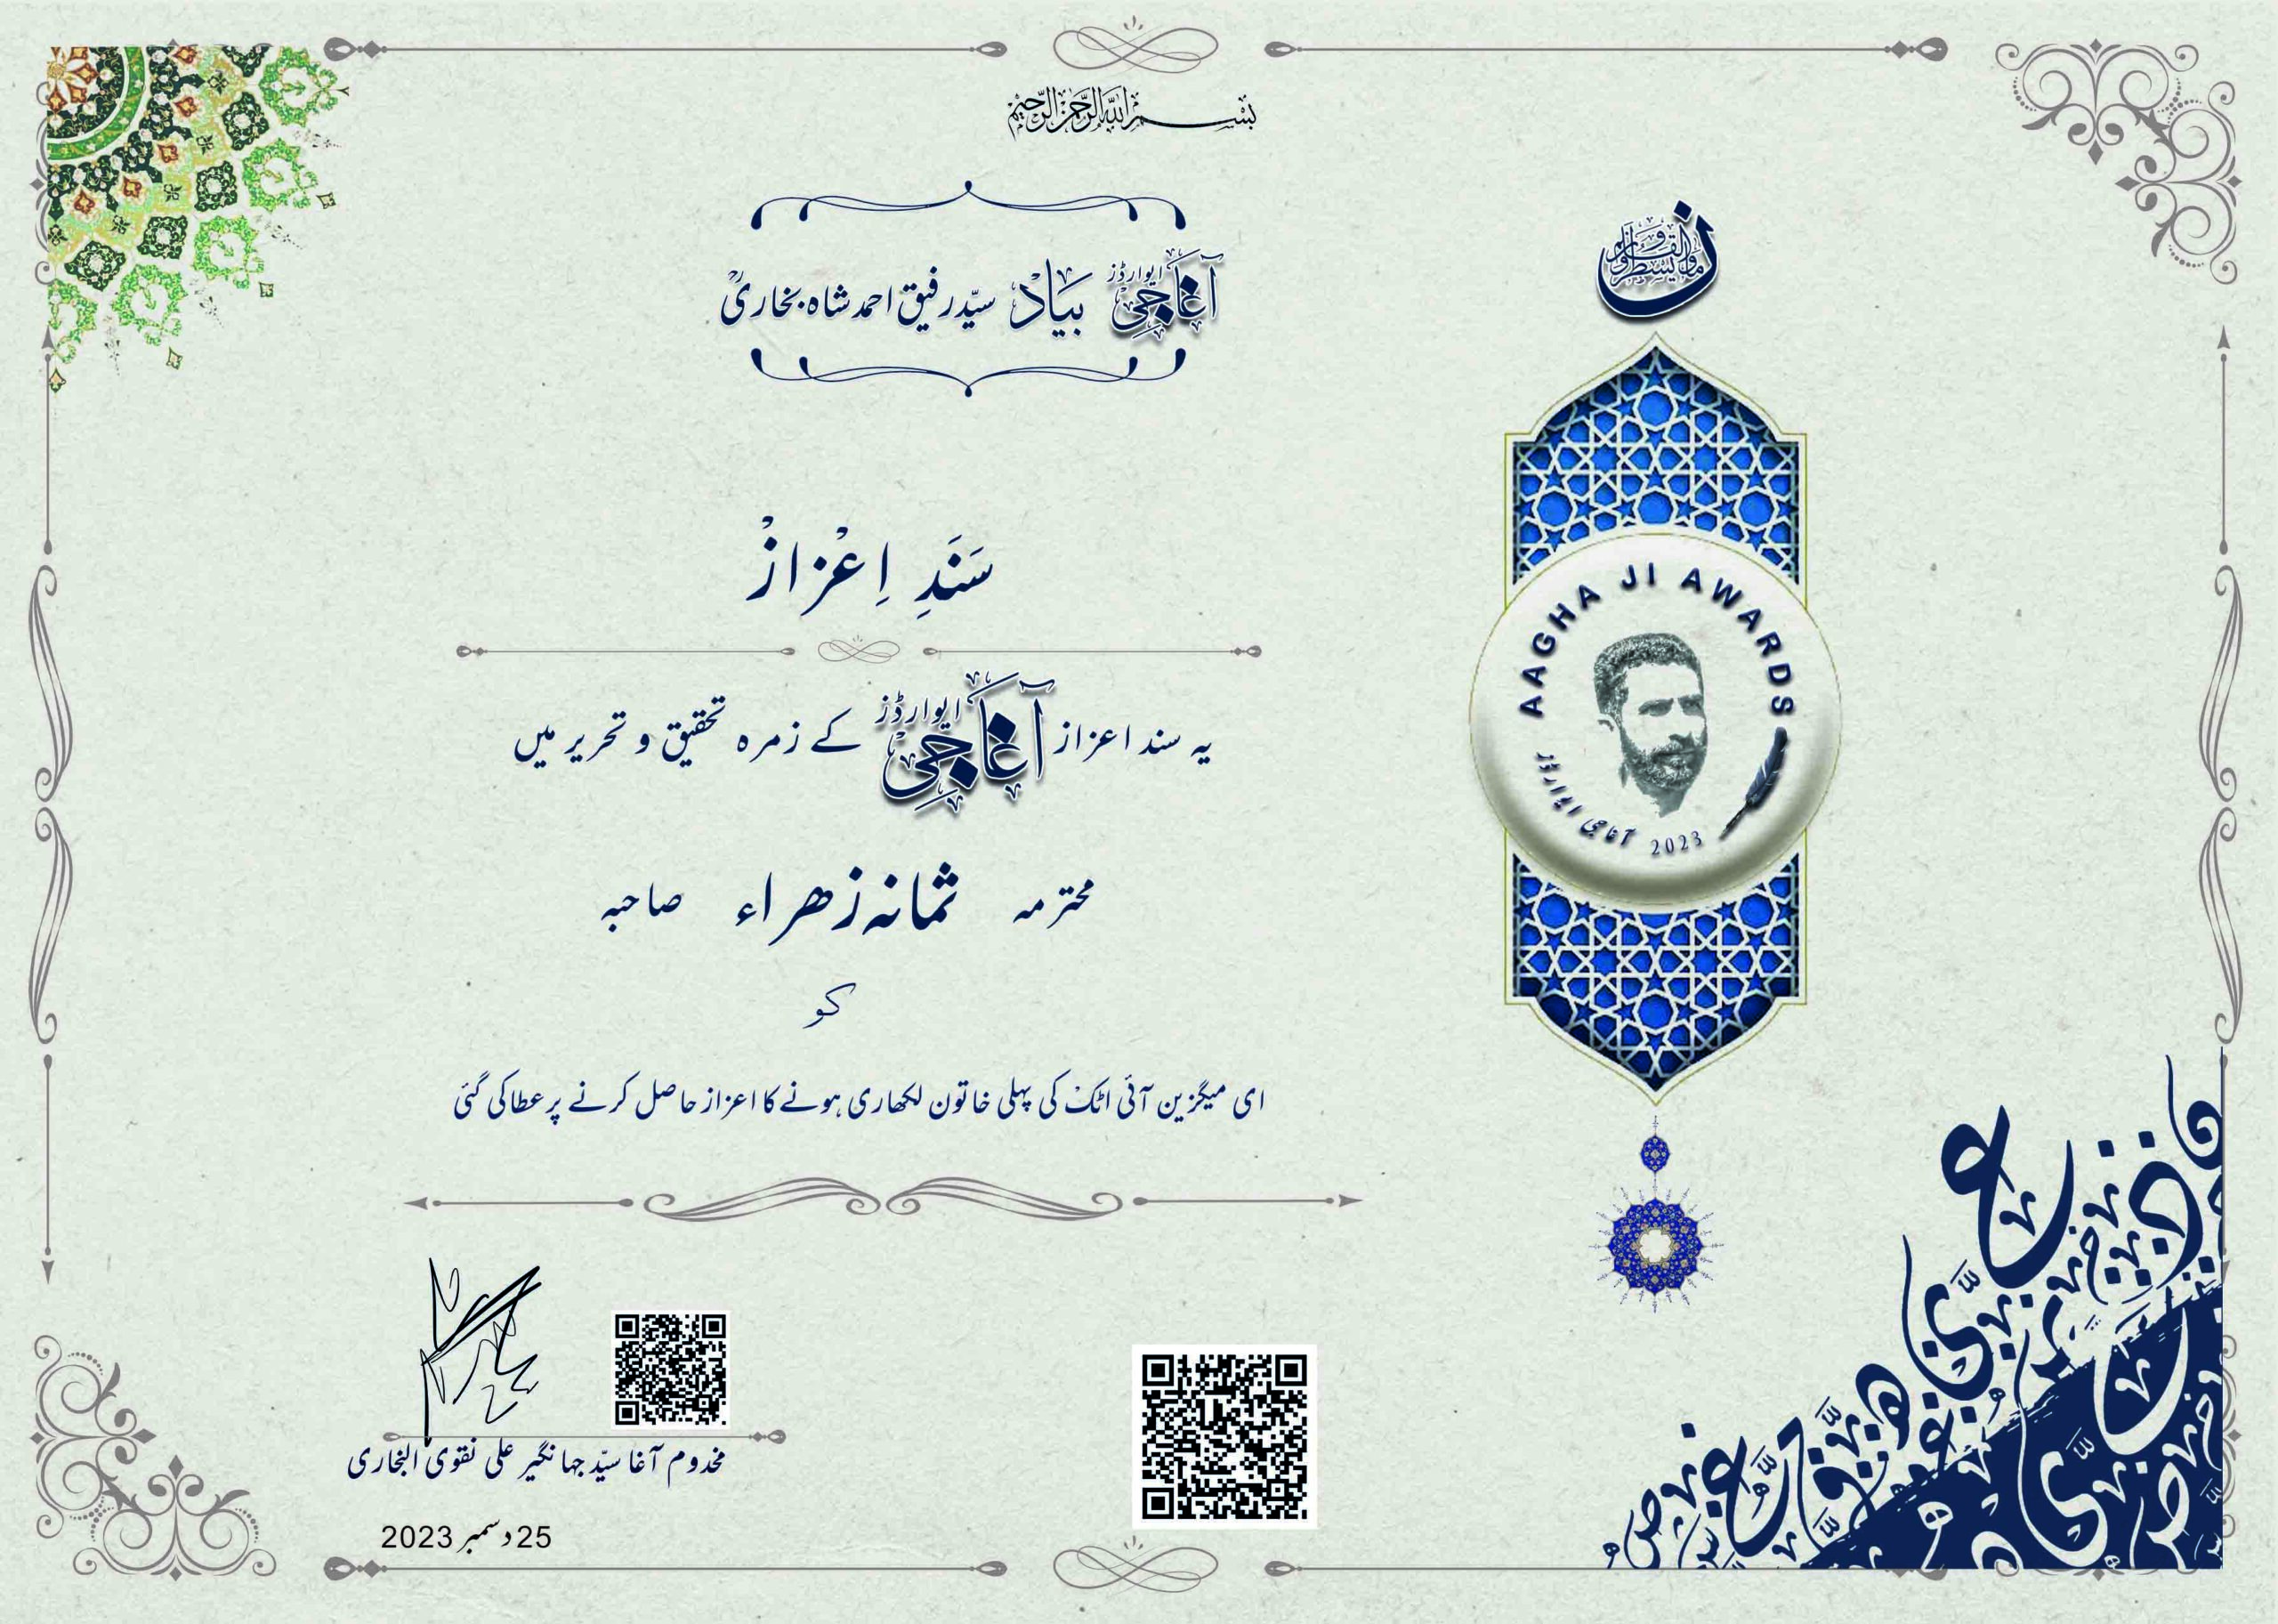 بسم اللہ الرحمٰن الرحیم
آغا جی ایوارڈز بیاد سیّد رفیق احمد شاہ بخاریؒ
ن والقلم وما یسطرون
سَنَدِ اِعْزازْ
یہ سند اعزاز آغا جی ایوارڈز کے زمرہ تحقیق و تحریر میں
محترمہ ثمانہ زھراء صاحبہ
کو
ای میگزین آئی اٹک کی پہلی خاتون لکھاری ہونے کا اعزاز حاصل کرنے پر عطا کی گئی
AAGHA JI AWARDS
آغا جی ایوارڈز 2023
مخدوم آغا سیّد جہانگیر علی نقوی البخاری
25 دسمبر 2023